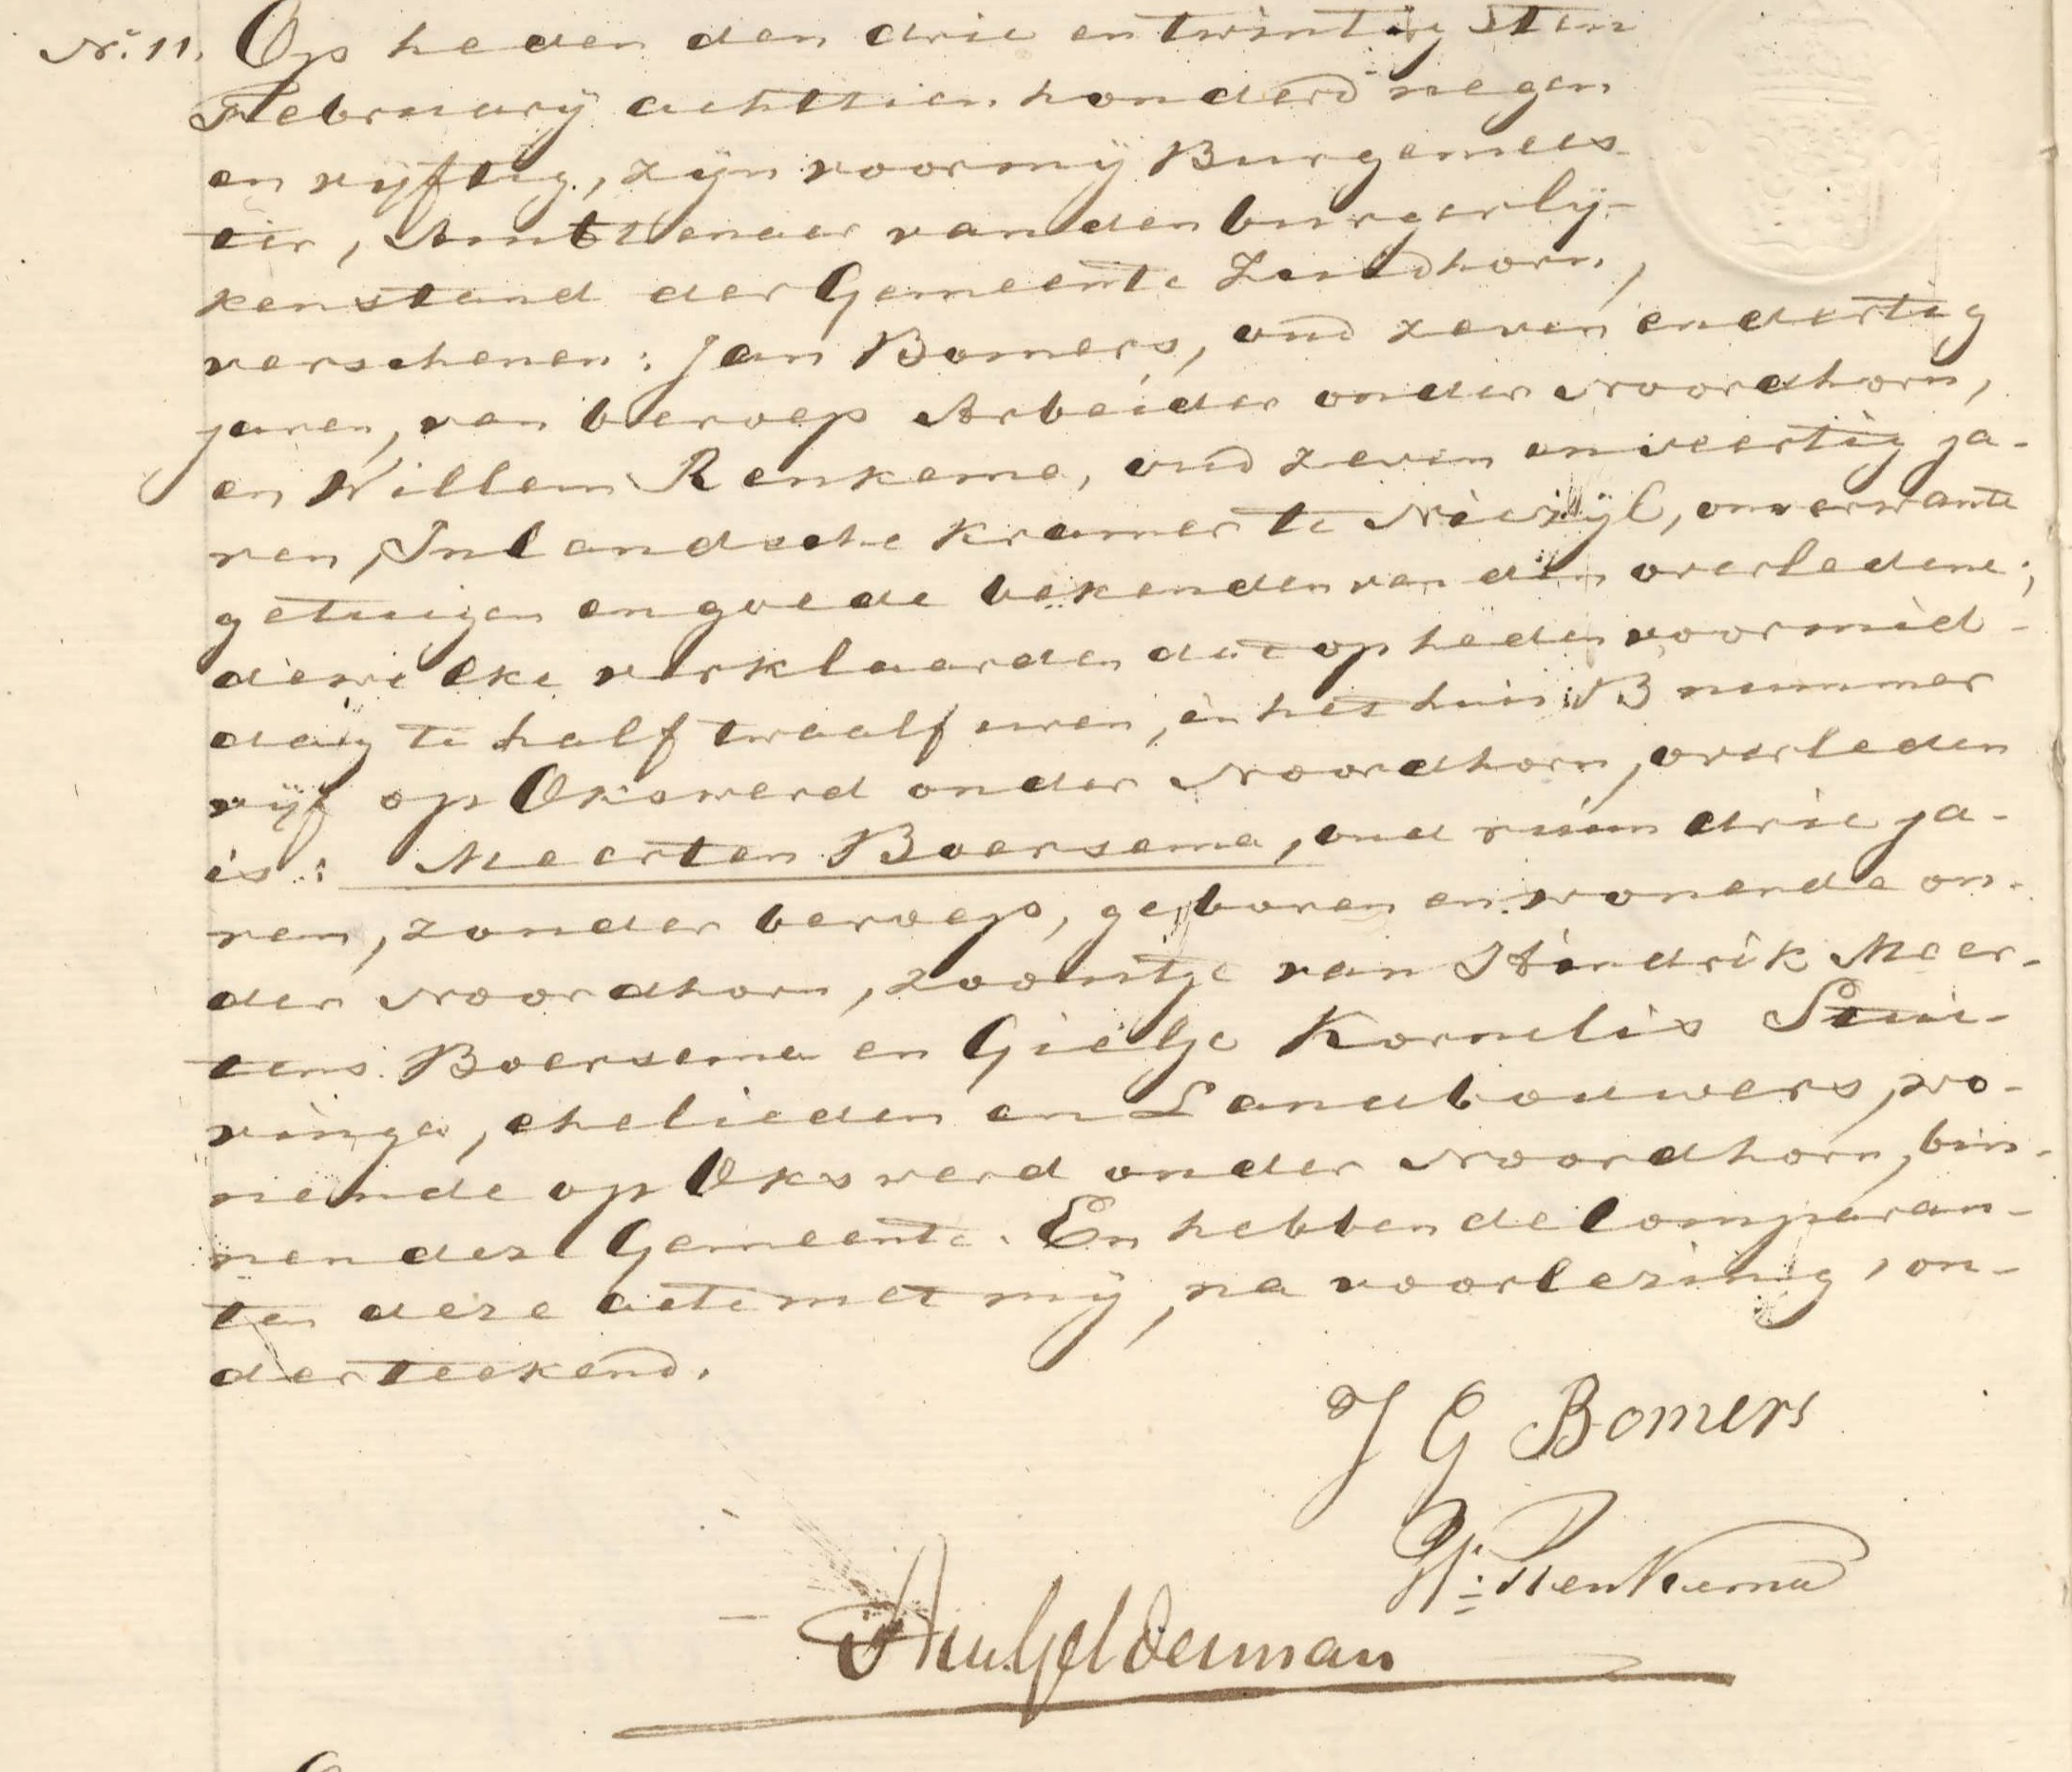 No. 11. Op heden den drie en twintigsten
February achttien honderd negen
en vijftig, zijn voor mij Burgemees-
ter, Ambtenaar van den burgerlij-
ken stand der Gemeente Zuidhorn,
verschenen: Jan Bomers, oud zeven en dertig
jaren, van beroep Arbeider onder Noordhorn,
en Willem Renkema, oud zeven en veertig ja-
ren, Inlandsche Kramer te Niezijl, onverwante
getuigen en goede bekenden van den overledene;
dewelke verklaarden dat op heden voormid-
dag te half twaalf uren, in het huis B nummer
vijf op Okswerd onder Noordhorn, overleden
is: Meerten Boersema, oud ruim drie ja-
ren, zonder beroep, geboren en wonende on-
der Noordhorn, zoontje van Hindrik Meer-
tens Boersema en Gieltje Kornelis
ringa, ehelieden en Landbouwers, wo-
nende op Okswerd onder Noordhorn, bin-
nen deze Gemeente. En hebben de Comparan-
ten deze acte met mij, na voorlezing, on-
derteekend.
J G Bomers
W: Renkema
Gelderman